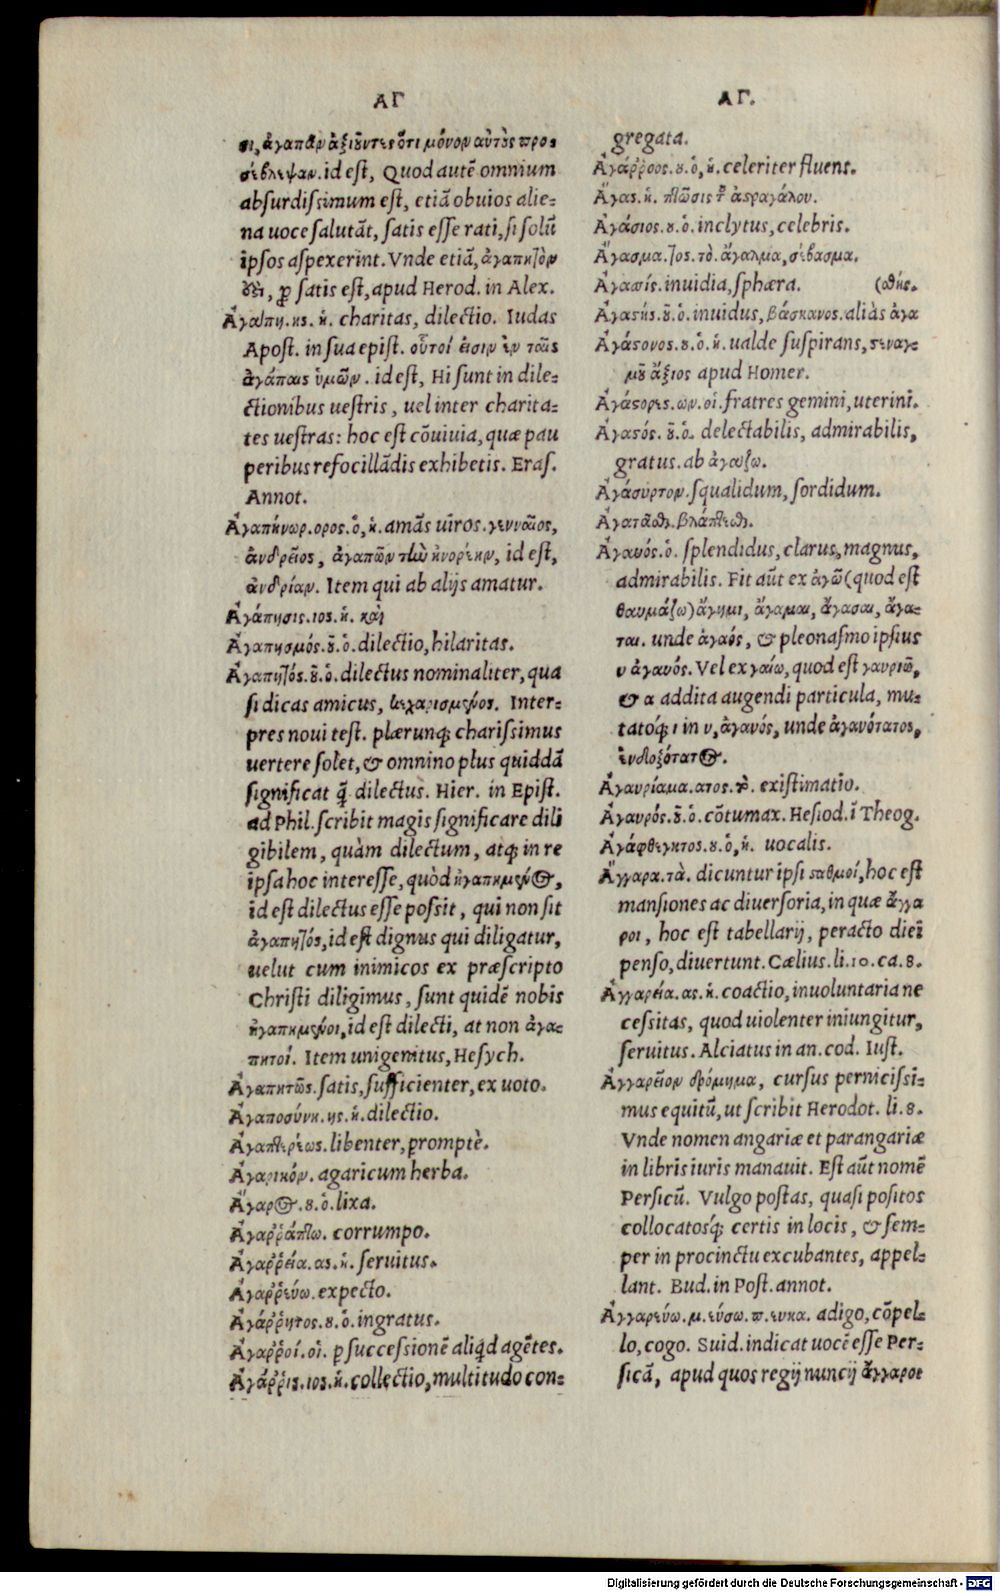 ΑΓ
σι, ἀγαπᾶν ἀξιοῦντες ὅτι μόνον αὐτὸς προσ
σέβλεψαν. id est, Quod autē omnium
absurdissimum est, etiā obuios alie-
na uoce salutāt, satis esse rati, si solū
ipsos aspexerint. Vnde etiā, ἀγαπητὸν
, ꝓ satis est, apud Herod. in Alex.
Ἀγάπη. ης. ἡ. charitas, dilectio. Iudas
Apost. in sua epist. οὗτοί εἰσιν ἐν ταῖς
ἀγάπαις ὑμῶν. id est, Hi sunt in dile-
ctionibus uestris, uel inter charita-
tes uestras: hoc est cōuiuia, quæ pau
peribus refocillādis exhibetis. Eras.
Annot.
Ἀγαπήνωρ. ορος. ὁ, ἡ. amās uiros. γενναῖος,
ἀνδρεῖος, ἀγαπῶν τὴν ἠνορέην, id est,
ἀνδρίαν. Item qui ab alijs amatur.
Ἀγάπησις. ιος. ἡ. καὶ
Ἀγαπησμός. οῦ. ὁ. dilectio, hilaritas.
Ἀγαπητός. οῦ. ὁ. dilectus nominaliter, qua
si dicas amicus, κεχαρισμένος. Inter-
pres noui test. plærunq; charissimus
uertere solet, & omnino plus quiddā
significat q̄ dilectus. Hier. in Epist.
ad Phil. scribit magis significare dili
gibilem, quàm dilectum, atq; in re
ipsa hoc interesse, quòd ἠγαπημένος,
id est dilectus esse possit, qui non sit
ἀγαπητός, id est dignus qui diligatur,
uelut cum inimicos ex præscripto
Christi diligimus, sunt quidē nobis
ἠγαπημένοι, id est dilecti, at non ἀγα-
πητοί. Item unigenitus, Hesych.
Ἀγαπητῶς. satis, sufficienter, ex uoto.
Ἀγαποσύνη. ης. ἡ. dilectio.
Ἀγαπτερέως. libenter, promptè.
Ἀγαρικόν. agaricum herba.
Ἄγαρος. ου. ὁ. lixa.
Ἀγαῤῥάπτω. corrumpo.
Ἀγαῤῥεία. ας. ἡ. seruitus.
Ἀγαῤῥεύω. expecto.
Ἀγάῤῥητος. ου. ὁ. ingratus.
Ἀγαῤῥοί. οἱ. ꝑ successionē aliqd agētes.
Ἀγάῤῥις. ιος. ἡ. collectio, multitudo con-
ΑΓ.
gregata.
Ἀγάῤῥοος. ου. ὁ, ἡ. celeriter fluens.
Ἄγας. ἡ. πτῶσις τοῦ ἀστραγάλου.
Ἀγάσιος. ου. ὁ. inclytus, celebris.
Ἄγασμα. τος. τὸ. ἄγαλμα, σέβασμα.
Ἀγασίς. inuidia, sphæra. (αθής.
Ἀγαστής. οῦ. ὁ. inuidus, βάσκανος. aliàs ἀγα
Ἀγάστονος. ου. ὁ. ἡ. ualde suspirans, στεναγ-
μοῦ ἄξιος apud Homer.
Ἀγάστορες. ων. οἱ. fratres gemini, uterini.
Ἀγαστός. οῦ. ὁ. delectabilis, admirabilis,
gratus. ab ἀγαυζω.
Ἀγάσυρτον. squalidum, sordidum.
Ἀγατᾶσθαι. βλάπτεσθαι.
Ἀγαυός. ὁ. splendidus, clarus, magnus,
admirabilis. Fit aūt ex ἀγῶ (quod est
θαυμάζω) ἄγημι, ἄγαμαι, ἄγασαι, ἄγα-
ται. unde ἀγαός, & pleonasmo ipsius
υ ἀγαυός. Vel ex γαίω, quod est γαυριῶ,
& α addita augendi particula, mu-
tatoq́; ι in υ, ἀγαυός, unde ἀγαυότατος,
ἐνδοξότατος.
Ἀγαυρίαμα. ατος. τὸ. existimatio.
Ἀγαυρός. οῦ. ὁ. cōtumax. Hesiod. ī Theog.
Ἀγάφθεγκτος. ου. ὁ, ἡ. uocalis.
Ἄγγαρα. τὰ. dicuntur ipsi σταθμοί, hoc est
mansiones ac diuersoria, in quæ ἄγγα
ροι, hoc est tabellarij, peracto diei
penso, diuertunt. Cælius. li. 10. ca. 8.
Ἀγγαρεία. ας. ἡ. coactio, inuoluntaria ne
cessitas, quod uiolenter iniungitur,
seruitus. Alciatus in an. cod. Iust.
Ἀγγαρεῖον δρόμημα, cursus pernicissi-
mus equitū, ut scribit Herodot. li. 8.
Vnde nomen angariæ et parangariæ
in libris iuris manauit. Est aūt nomē
Persicū. Vulgo postas, quasi positos
collocatosq́; certis in locis, & sem-
per in procinctu excubantes, appel-
lant. Bud. in Post. annot.
Ἀγγαρεύω. μ. εύσω. π. ευκα. adigo, cōpel-
lo, cogo. Suid. indicat uocē esse Per-
sicā, apud quos regij nuncij ἄγγαροι
Digitalisierung gefördert durch die Deutsche Forschungsgemeinschaft - DFG